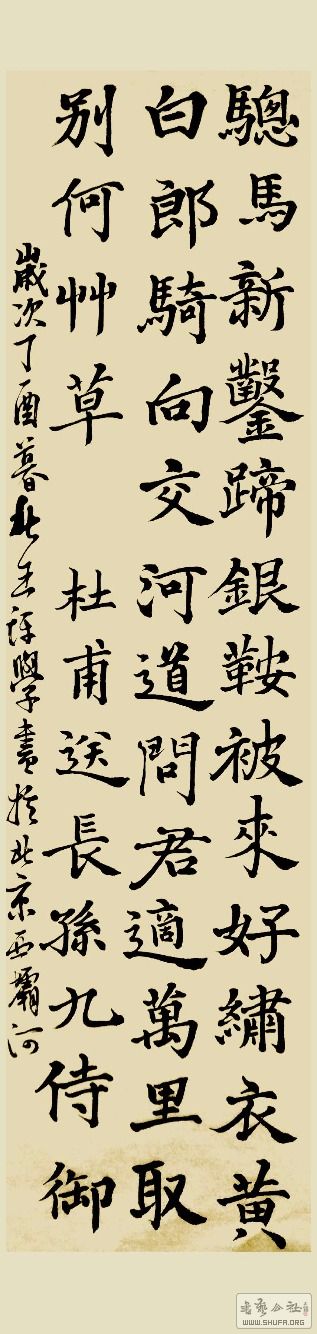 驄馬新鑿蹄銀鞍被來好繡衣黃
白郎騎向交河道問君適萬里取
別何艸草 杜甫送長孫九侍御
歲次丁酉暮 王 學書於北京西壩河
WWW.SHUFA.ORG